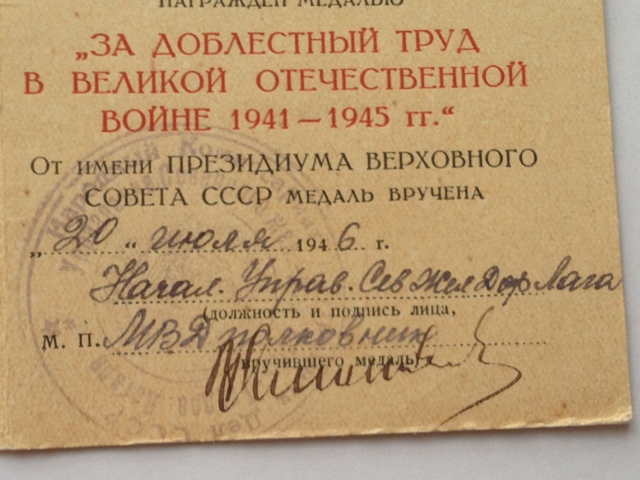 НАГРАЖДЕН МЕДАЛЬЮ
„ЗА ДОБЛЕСТНЫЙ ТРУД
В ВЕЛИКОЙ ОТЕЧЕСТВЕННОЙ
ВОЙНЕ 1941—1945 гг.“
От имени ПРЕЗИДИУМА ВЕРХОВНОГО
СОВЕТА СССР МЕДАЛЬ ВРУЧЕНА
„20“ июля 1946 г.
Начал. Управ. Сев Жел Дор Лага
(должность и подпись лица,
М. П. МВД полковник
вручившего медаль)